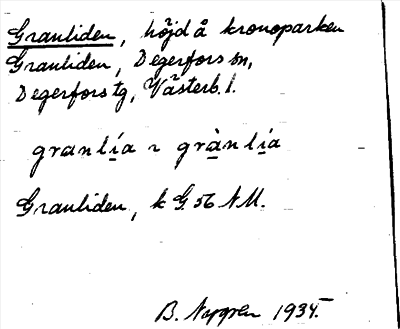 Granliden, höjd å kronoparken
Granliden, Degerfors sn,
Degerfors tg, Västerb. l.
granlía ~ grànlía
Granliden, k G. 56 NU.
B. 1934.